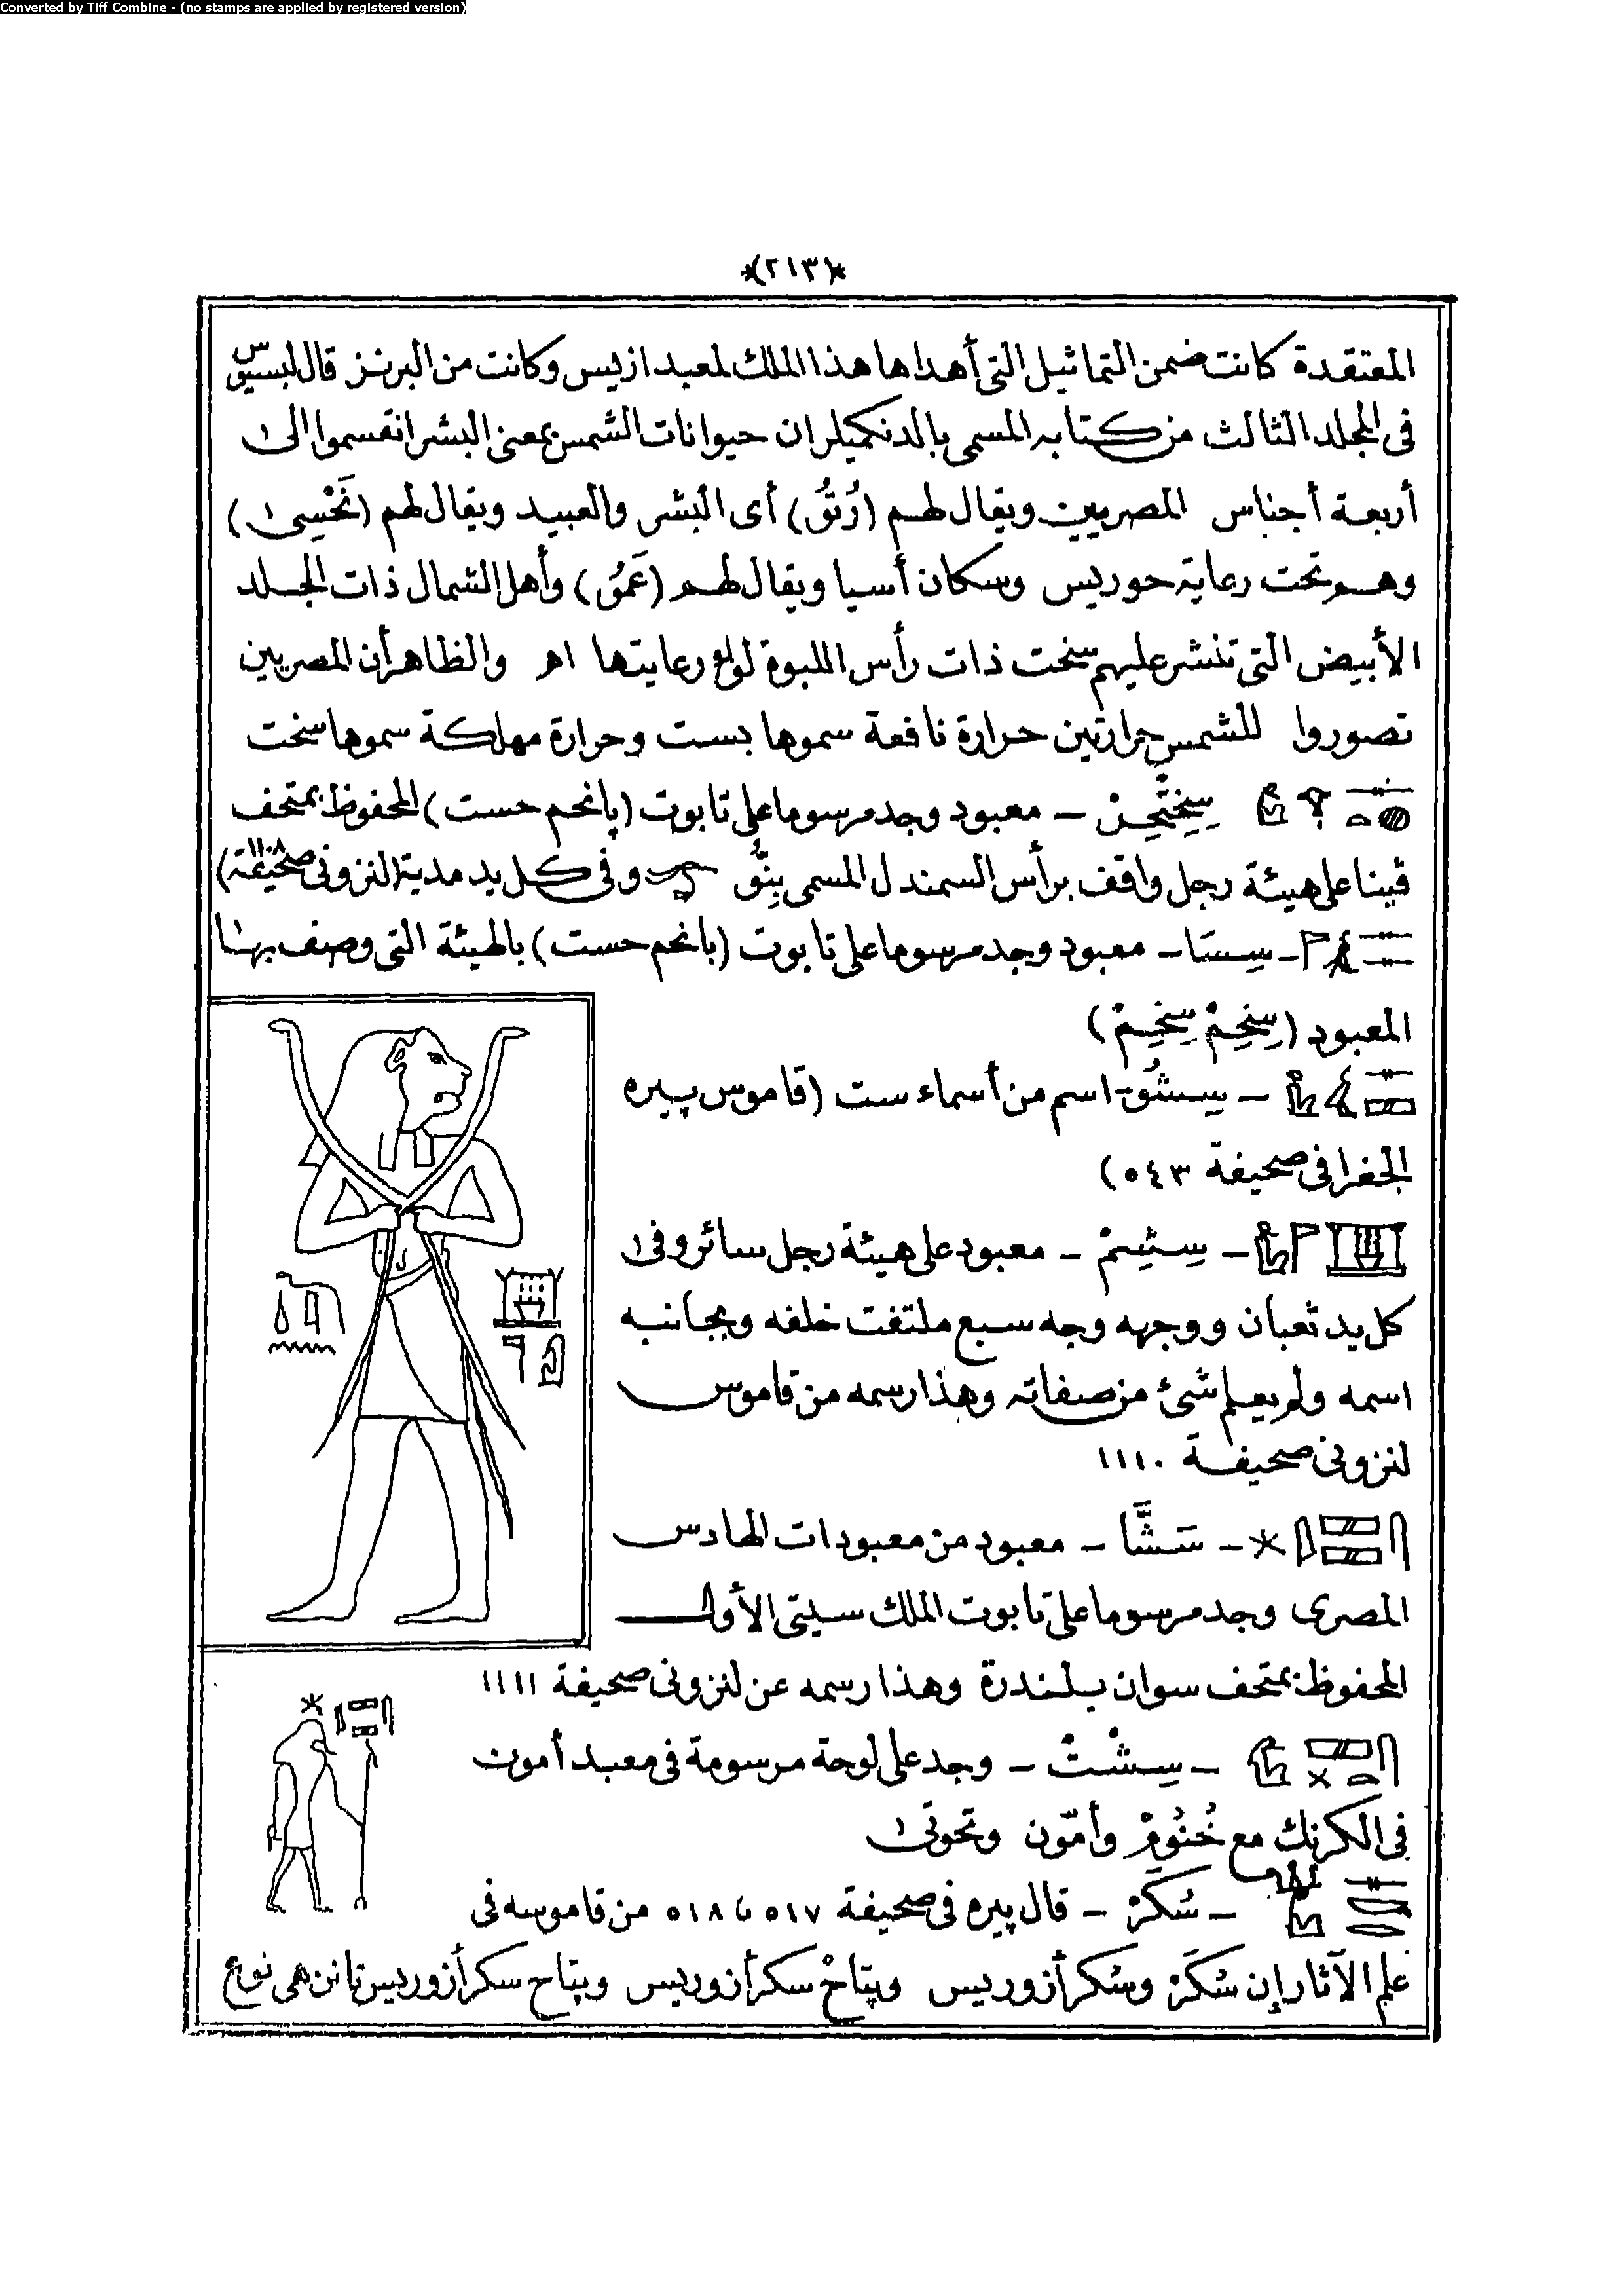 Converted by Tiff Combine - (no stamps are applied by registered version)
*(٢١٣)*
المعتقدة كانت ضمن التماثيل التى أهداها هذا الملك لمعبد ازيس وكانت من البرنز قال لبسيوس
فى المجلد الثالث من كتابه المسمى بالدنكميلر ان حيوانات الشمس بمعنى البشر انقسموا الى
أربعة أجناس المصريين ويقال لهم (رُتُو) أى البشر والعبيد ويقال لهم (نَحْسِى)
وهم تحت رعاية حوريس وسكان أسيا ويقال لهم (عَمُو) وأهل الشمال ذات الجلد
الأبيض التى تنشر عليهم سخت ذات رأس اللبوة لواء رعايتها اه والظاهر أن المصريين
تصوروا للشمس حرارتين حرارة نافعة سموها بست وحرارة مهلكة سموها سخت
سِخِتْحِنْ - معبود وجد مرسوما على تابوت (پانحم حست) المحفوظ بمتحف
ڤينا على هيئة رجل واقف برأس السمندل المسمى بِنُّو وفى كل يد مدية (لنزونى صحيفة ١١٠٨)
- سِسَا - معبود وجد مرسوما على تابوت (بانحم حست) بالهيئة التى وصف بها
المعبود (سِخِمْ سِخِمْ)
- سِشُو - اسم من أسماء ست (قاموس پيره
الجغرافى صحيفة ٥٤٣)
- سِشِمْ - معبود على هيئة رجل سائر وفى
كل يد ثعبان ووجهه وجه سبع ملتفت خلفه وبجانبه
اسمه ولم يعلم شئ من صفاته وهذا رسمه من قاموس
لنزونى صحيفة ١١١٠
- سَشَّا - معبود من معبودات الهادس
المصرى وجد مرسوما على تابوت الملك سيتى الأول
المحفوظ بمتحف سوان بلندرة وهذا رسمه عن لنزونى صحيفة ١١١١
- سِشْتْ - وجد على لوحة مرسومة فى معبد أمون
فى الكرنك مع خُنُومْ وأمّون وتحوتى
- سُكَرْ - قال پيره فى صحيفة ٥١٧ و ٥١٨ من قاموسه فى
علم الآثار إن سُكَرْ وسُكر أزوريس وپتاحْ سكر أزوريس وپتاح سكر أزوريس تانن هى نوع